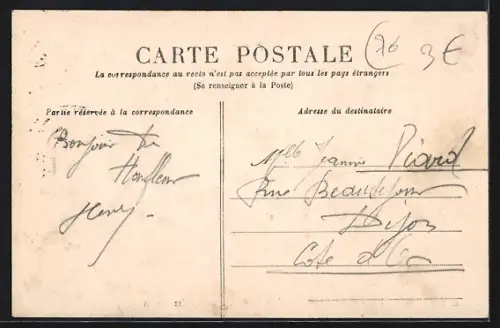 CARTE POSTALE
(26
3€
La correspondance au recto n'est pas acceptée par tous les pays étrangers
(Se renseigner à la Poste)
Partie réservée à la correspondance
Adresse du destinataire
Bonjour de
Honfleur
Henry
Mlle Jeanne Picard
Rue Beauséjour
Dijon
Cote d'Or